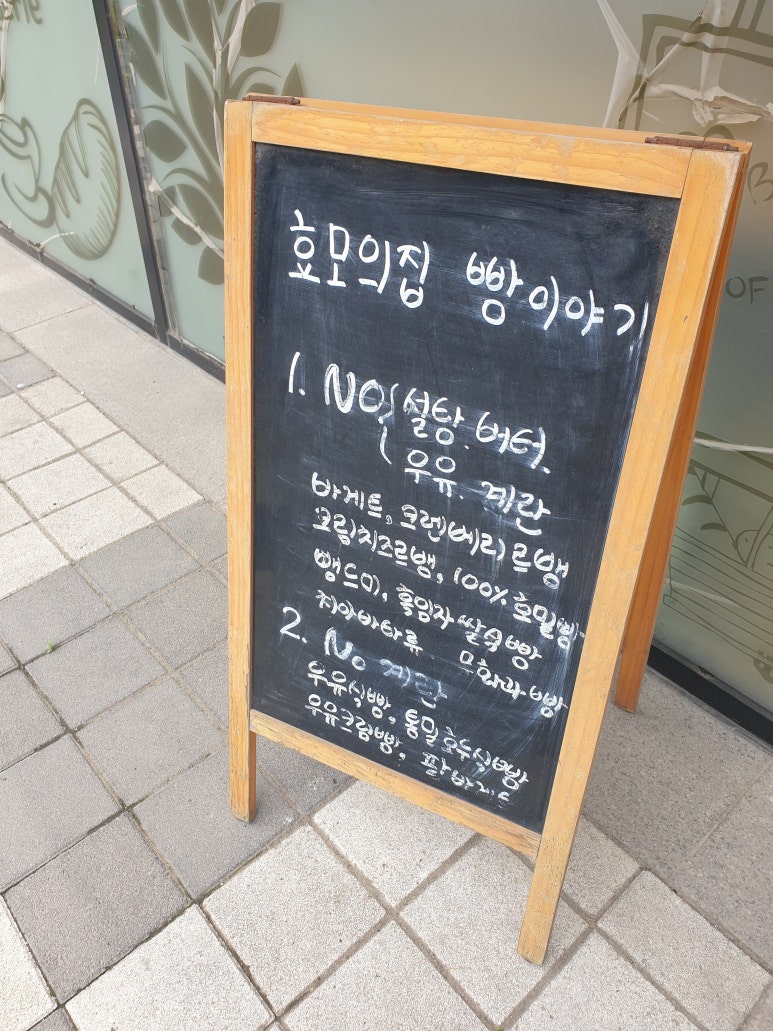 효모의집 빵이야기
1. NO (설탕. 버터.
우유. 계란
바게트, 크렌베리 르뱅
크림치즈르뱅, 100% 호밀빵
뺑드미, 흑임자 쌀 빵
치아바타류 무화과 빵
2. No 계란
우유식빵, 통밀호두식빵
우유크림빵, 팥바게트
OF